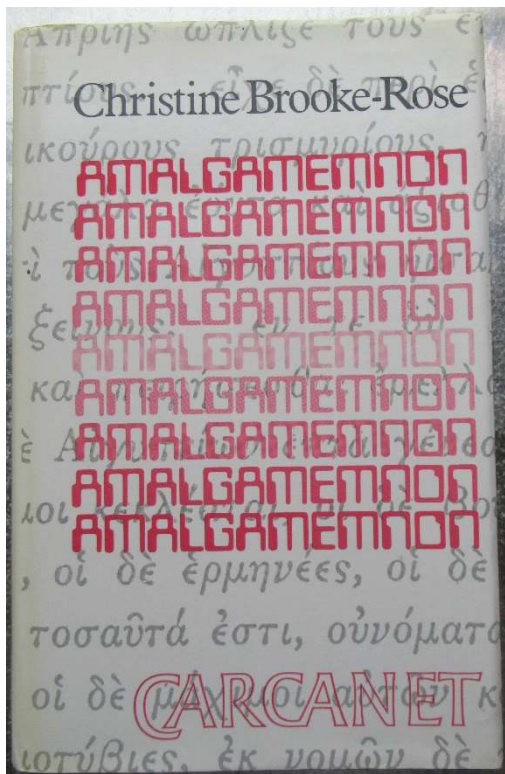 Ἀπρίης ὥπλιζε τοὺς ἐ
πτίους. εἶχε δὲ περὶ ἑ
Christine Brooke-Rose
ικούρους τρισμυρίους.
AMALGAMEMNON
AMALGAMEMNON
AMALGAMEMNON
AMALGAMEMNON
AMALGAMEMNON
AMALGAMEMNON
AMALGAMEMNON
AMALGAMEMNON
AMALGAMEMNON
, οἱ δὲ ἑρμηνέες, οἱ δὲ
τοσαῦτά ἐστι, οὐνόματα
οἱ δὲ μάχιμοι αὐτῶν κ
CARCANET
ιοτύβιες, ἐκ νομῶν δὲ